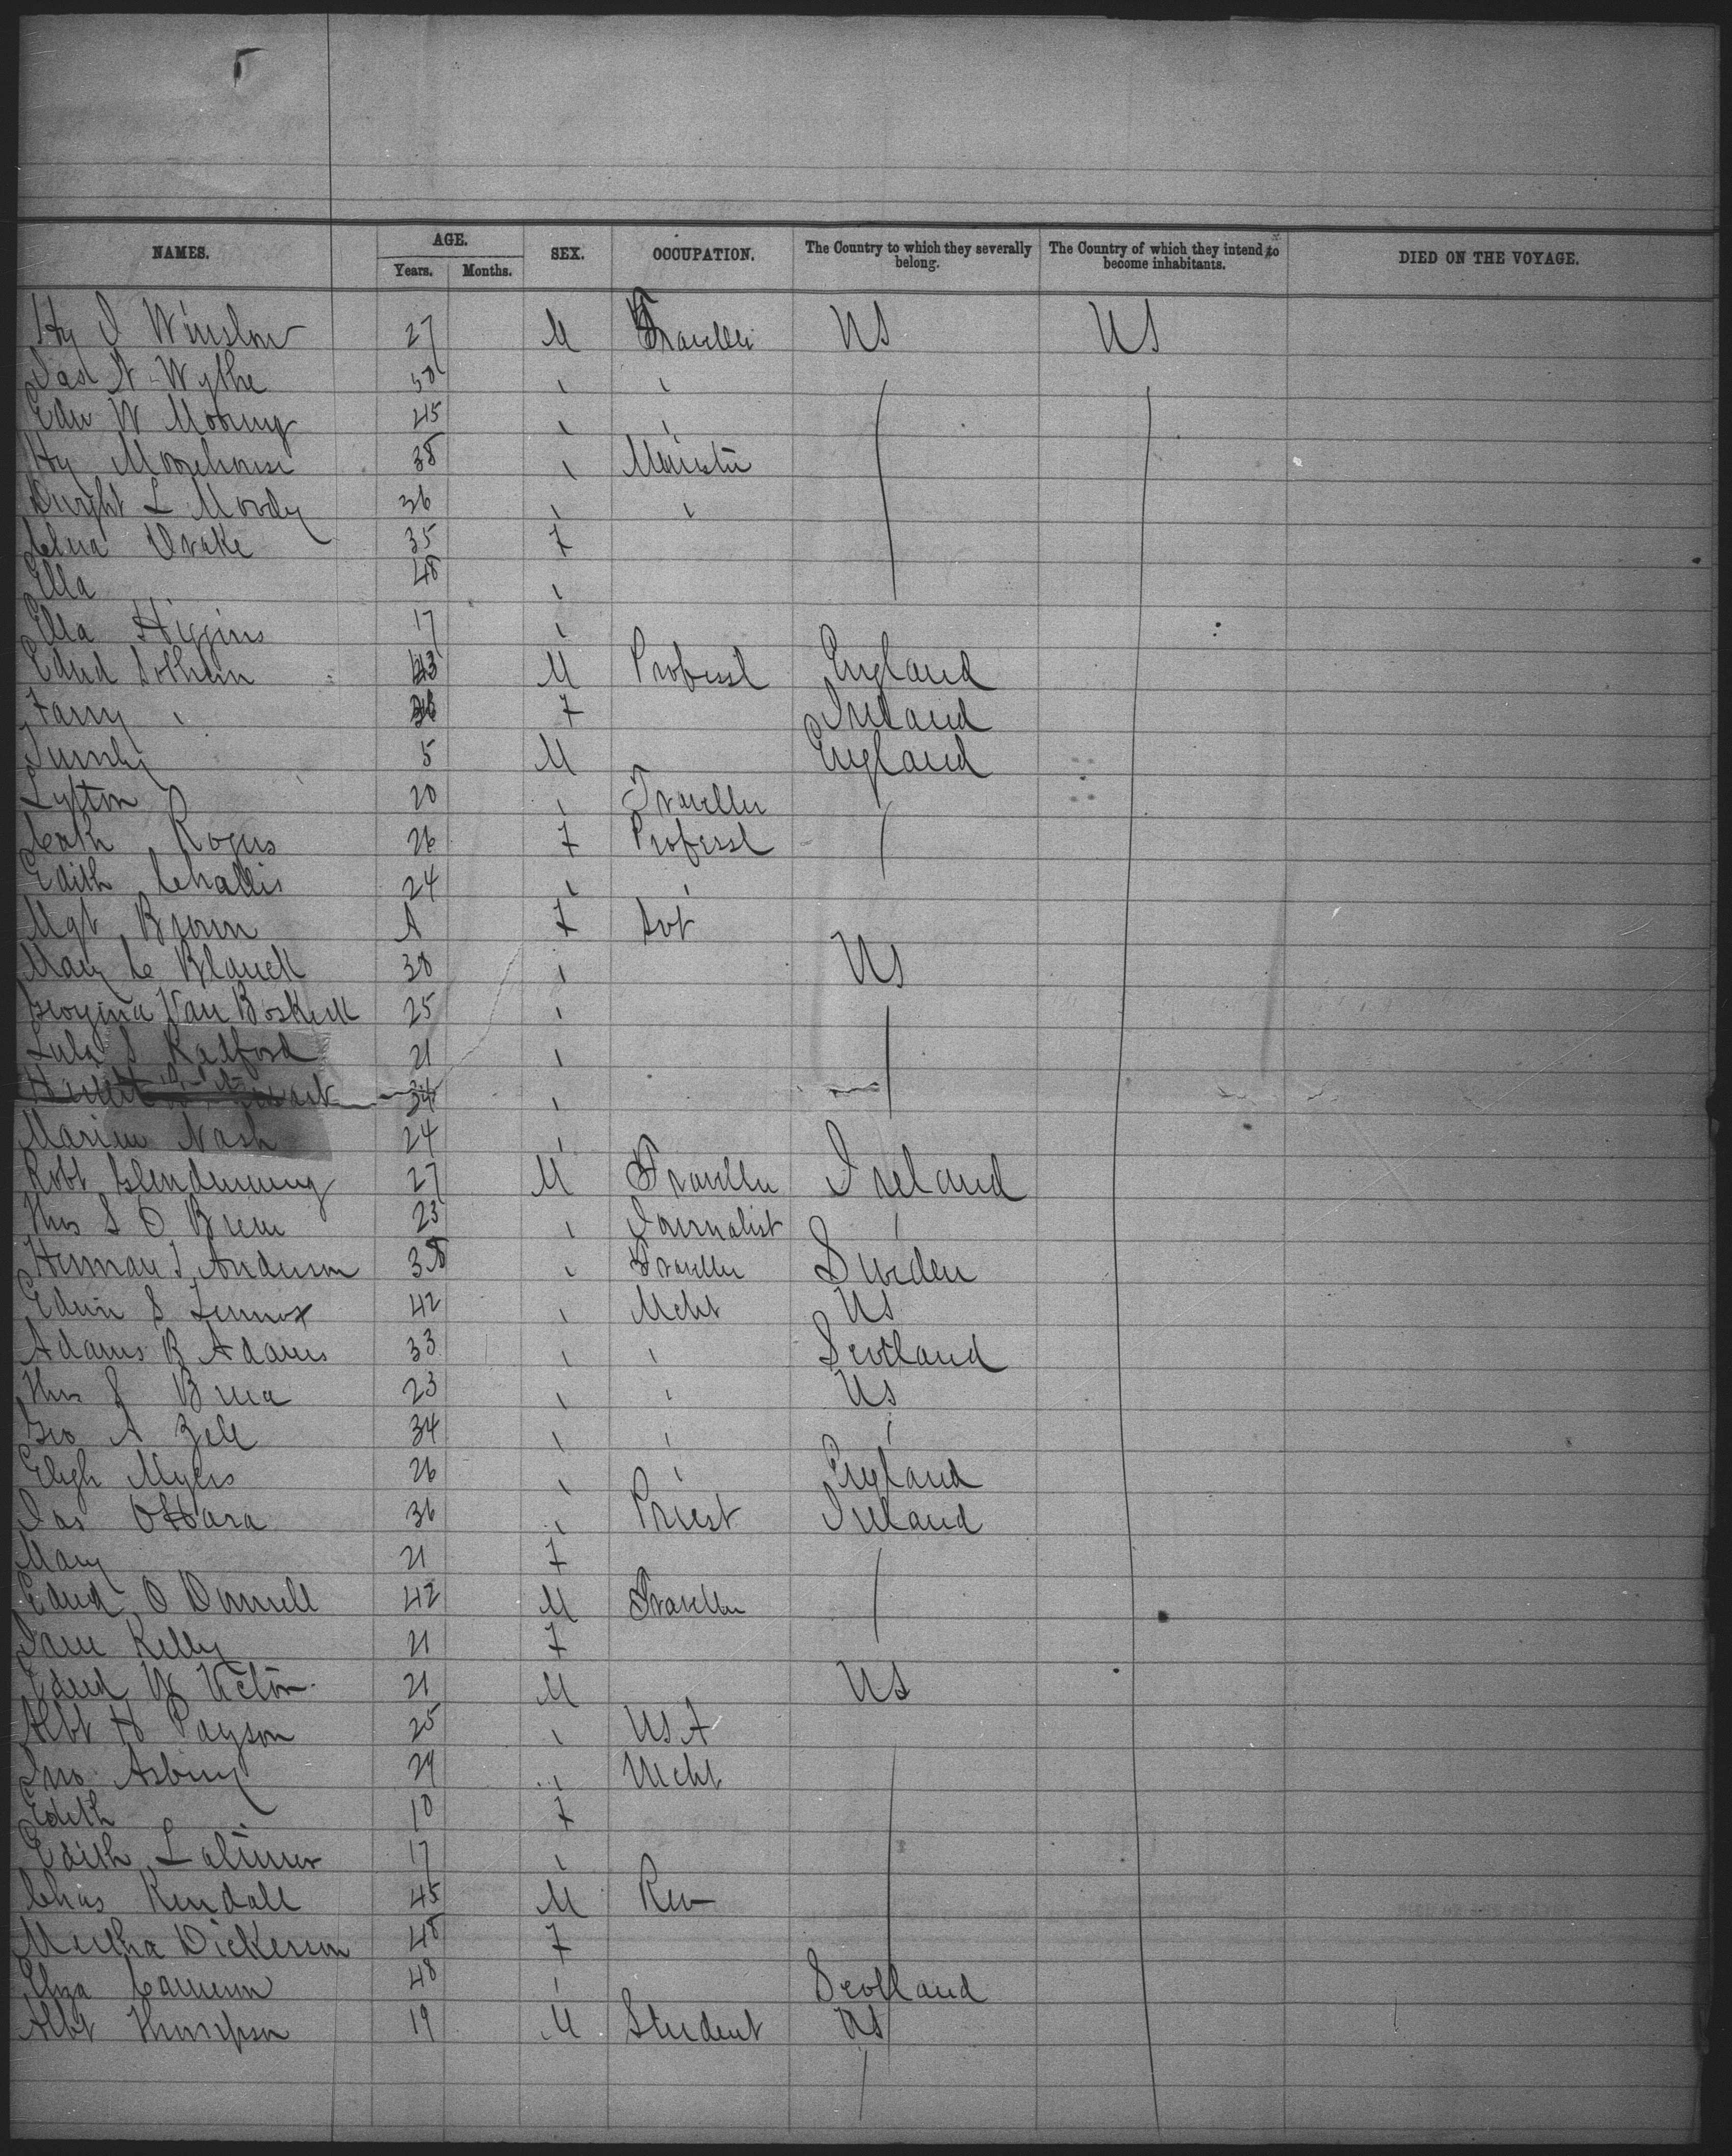 NAMES. AGE. Years. Months. SEX. OCCUPATION. The Country to which they severally belong. The Country of which they intend to become inhabitants. DIED ON THE VOYAGE.
Hy J Winslow 27 M Traveller US US
W Wythe 50 " "
Edw W 45 " "
Hy Morehouse 38 " Minister
Dwight L Moody 36 " "
Drake 35 F
Ella 48 "
Ella Higgins 17 "
Edwd Sothern 43 M Professl England
Fanny " F Ireland
5 M England
Lytton 20 " Traveller
Cath Rogers 26 F Professl
Edith Challis 24 " "
Mgt Brown A F Svt
Mary C Blauck 30 " US
Georgina Van Boskerck 25 "
Lula S Radford 21 "
34 "
Marion Nash 24 "
Robt Glendenning 27 M Traveller Ireland
Thos S O Brien 23 " Journalist "
Herman J Anderson 38 " Traveller Sweden
Edwin S Lennox 42 " Mcht US
Adams B Adams 33 " " Scotland
Thos S 23 " " US
Geo A Zell 34 " " "
Myers 26 " " England
Jas O'Hara 36 " Priest Ireland
Mary 21 F
Edwd O Donnell 42 M Traveller
Jane Kelly 21 F
Edwd W Victor 21 M US
Albt H Payson 25 " USA
Jno Asbury 29 " Mcht
Edith 10 F
Edith Latimer 17 "
Chas Kendall 45 M Rev
Dickerson 48 F
Eliza Cameron 48 " Scotland
Albt Thompson 19 M Student US